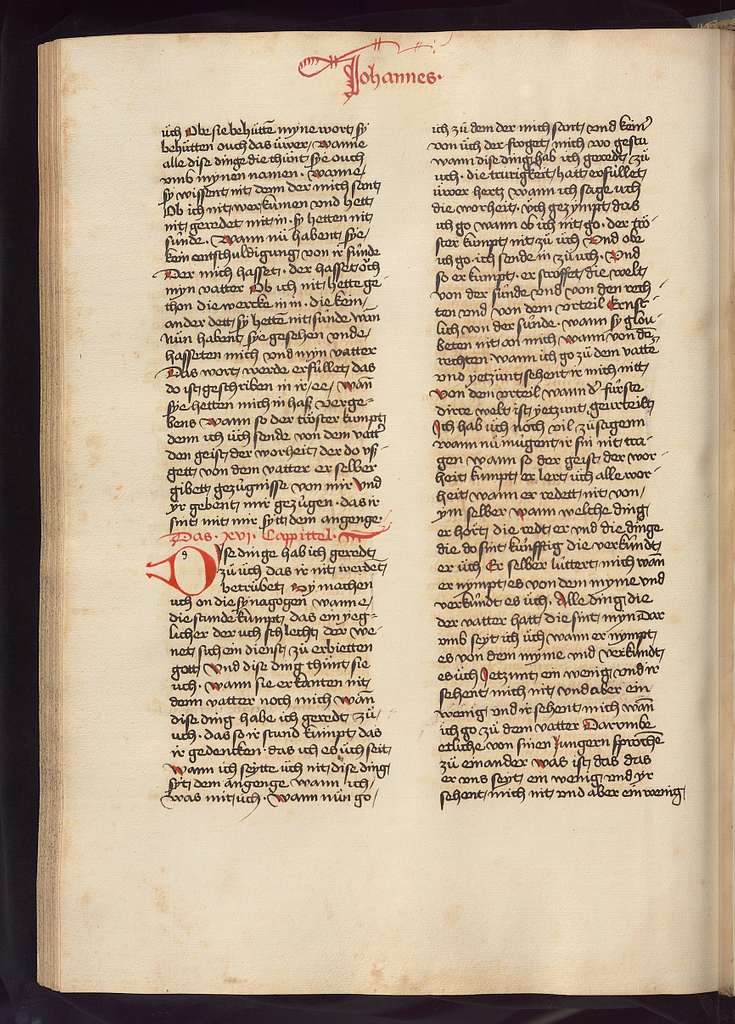 Johannes.
üch Obe sie behütten myne wort sy
behütten ouch das üwer. Wanne
alle dise dinge die thünt sye ouch
vmb mynen namen. Wanne
sy wissent nit denn der mich sant
Ob ich nit wer kumen vnd hett
nit geredet mit in. sy hetten nit
sünde. Wann nü habent sye
kein entschuldigung von ir sünde
Der mich hasset. der hasset och
myn vatter Ob ich nit hette ge
thon die wercke in in. die kein
ander dett sy hetten nit sünde wan
nün habent sye gesehen vnde
hasseten mich vnd myn vatter
Das wort werde erfüllet das
do ist geschriben in ir ee. wan
sye hetten mich in hass verge
bens Wann so der tröster kumpt
denn ich üch sende von dem vatter
den geist der worheit der do vß
gett von dem vatter er selber
gibett gezügnisse von mir Vnd
yr gebent mir gezügen. das ir
sint mit mir syt dem angenge.
Das .xvi. Cappittel.
Dise dinge hab ich geredt
zü üch das ir nit werdet
betrübet. Sy machen
üch on die synagogen wanne
die stunde kumpt das ein yeg
licher der üch schlecht der we
net sich ein dienst zü erbietten
gott Vnd dise ding thünt sie
üch. wann sie erkanten nit
denn vatter noch mich wan
dise ding habe ich geredt zü
üch. das so ir stund kumpt das
ir gedencken das ich es üch seit
Wann ich seytte üch nit dise ding
syt dem angenge wann ich
was mit üch. Wann nün go
ich zü dem der mich sant vnd keiner
von üch der froget mich wo gestu
wann dise ding hab ich geredt zü
üch. die trurigkeit hatt erfüllet
üwer hertz wann ich sage üch
die worheit. Üch gezympt das
ich go wann ob ich nit go. der trö
ster kumpt nit zü üch Vnd obe
ich go. ich sende in zü üch. Vnd
so er kumpt. er stroffet die welt
von der sünde vnd von den rech
ten vnd von dem vrteil Ernst
lich von der sünde. wann sy glou
beten nit an mich wann von dem
rechten. wann ich go zü dem vatter
vnd yetzünt sehent ir mich nitt
Von dem vrteil wann der fürste
dirre welt ist yetzunt geurteilt
Ich hab üch noch vil zü sagenn
wann nü mügent ir sin nit tra
gen wann so der geist der wor
heit kumpt er lert üch alle wor
heit wann er redett nit von
ym selber wann welche ding
er hört. die redt er vnd die dinge
die do sint künfftig die verkündt
er üch Er selber lüttert mich wan
er nympt es von dem myme vnd
verkündt es üch. Alle ding die
der vatter hatt die sint myn Dar
vmb seyt ich üch wann er nympt
es von dem myme vnd verkündt
es üch Yetzunt ein wenig vnd ir
sehent mich nit vnd aber ein
wenig vnd ir sehent mich wan
ich go zü dem vatter Darumbe
etliche von sinen Jungern sprochen
zü einander was ist das das
er vns seyt ein wenig vnd yr
sehent mich nit vnd aber ein wenig